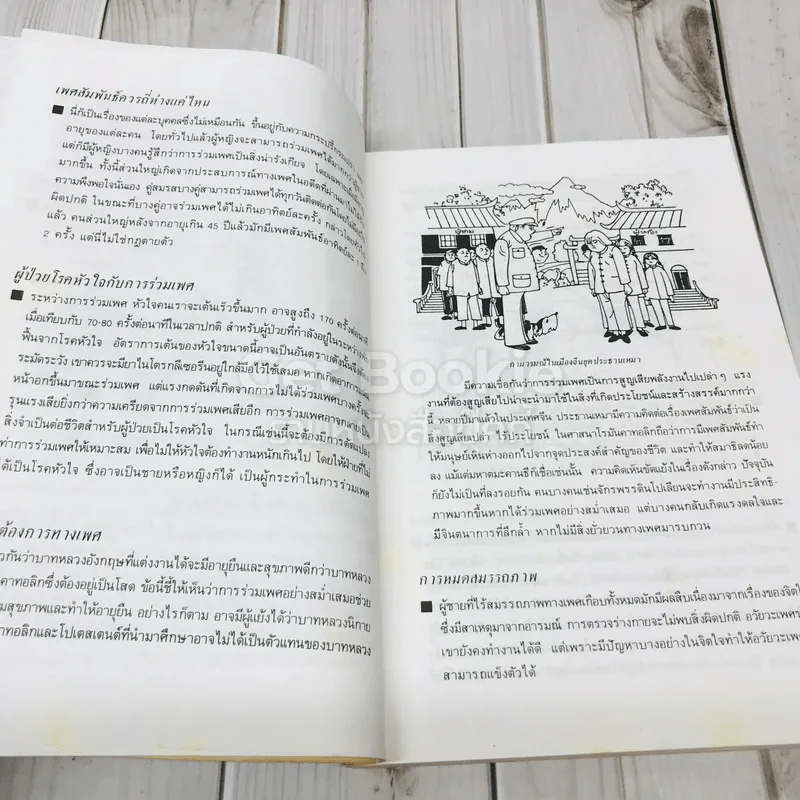 เพศสัมพันธ์ควรถี่ห่างแค่ไหน
นี่ก็เป็นเรื่องของแต่ละบุคคลซึ่งไม่เหมือนกัน ขึ้นอยู่กับความกระปรี้กระเปร่า
อายุของแต่ละคน โดยทั่วไปแล้วผู้หญิงจะสามารถร่วมเพศได้มากกว่า
แต่ก็มีผู้หญิงบางคนรู้สึกว่าการร่วมเพศเป็นสิ่งน่ารังเกียจ โดยเฉพาะ
มากขึ้น ทั้งนี้ส่วนใหญ่เกิดจากประสบการณ์ทางเพศในอดีตที่ผ่านมา
ความพึงพอใจนั่นเอง คู่สมรสบางคู่สามารถร่วมเพศได้ทุกวันติดต่อกัน
ผิดปกติ ในขณะที่บางคู่อาจร่วมเพศได้ไม่เกินอาทิตย์ละครั้ง กล่าวโดยทั่วไป
แล้ว คนส่วนใหญ่หลังจากอายุเกิน 45 ปีแล้วมักมีเพศสัมพันธ์อาทิตย์ละ 1 ถึง
2 ครั้ง แต่นี่ไม่ใช่กฎตายตัว
ผู้ป่วยโรคหัวใจกับการร่วมเพศ
ระหว่างการร่วมเพศ หัวใจคนเราจะเต้นเร็วขึ้นมาก อาจสูงถึง 170 ครั้งต่อนาที
เมื่อเทียบกับ 70-80 ครั้งต่อนาทีในเวลาปกติ สำหรับผู้ป่วยที่กำลังอยู่ในระหว่าง
ฟื้นจากโรคหัวใจ อัตราการเต้นของหัวใจขนาดนี้อาจเป็นอันตราย
ระมัดระวัง เขาควรจะมียาไนโตรกลีเซอรีนอยู่ใกล้มือไว้ใช้เสมอ หากเกิดอาการ
หน้าอกขึ้นมาขณะร่วมเพศ แต่แรงกดดันที่เกิดจากการไม่ได้ร่วมเพศบางครั้ง
รุนแรงเสียยิ่งกว่าความเครียดจากการร่วมเพศเสียอีก การร่วมเพศอาจกลาย
สิ่งจำเป็นต่อชีวิตสำหรับผู้ป่วยเป็นโรคหัวใจ ในกรณีเช่นนี้จะต้องมีการดัดแปลง
ท่าการร่วมเพศให้เหมาะสม เพื่อไม่ให้หัวใจต้องทำงานหนักเกินไป โดยให้ฝ่ายที่ไม่
ได้เป็นโรคหัวใจ ซึ่งอาจเป็นชายหรือหญิงก็ได้ เป็นผู้กระทำในการร่วมเพศ
ต้องการทางเพศ
วกันว่าบาทหลวงอังกฤษที่แต่งงานได้จะมีอายุยืนและสุขภาพดีกว่าบาทหลวง
คาทอลิกซึ่งต้องอยู่เป็นโสด ข้อนี้ชี้ให้เห็นว่าการร่วมเพศอย่างสม่ำเสมอช่วย
มสุขภาพและทำให้อายุยืน อย่างไรก็ตาม อาจมีผู้แย้งได้ว่าบาทหลวงนิกาย
าทอลิกและโปเตสเตนต์ที่นำมาศึกษาอาจไม่ได้เป็นตัวแทนของบาทหลวง
กามารมณ์ในเมืองจีนยุคประธานเหมา
มีความเชื่อกันว่าการร่วมเพศเป็นการสูญเสียพลังงานไปเปล่า ๆ แรง
งานที่ต้องสูญเสียไปน่าจะนำมาใช้ในสิ่งที่เกิดประโยชน์และสร้างสรรค์มากกว่า
นี้ หลายปีมาแล้วในประเทศจีน ประธานเหมามีความคิดต่อเรื่องเพศสัมพันธ์ว่าเป็น
สิ่งสูญเสียเปล่า ไร้ประโยชน์ ในศาสนาโรมันคาทอลิกถือว่าการมีเพศสัมพันธ์ทำ
ให้มนุษย์เหินห่างออกไปจากจุดประสงค์สำคัญของชีวิต และทำให้สมาธิลดน้อย
ลง แม้แต่มหาตมะคานธีก็เชื่อเช่นนั้น ความคิดเห็นขัดแย้งในเรื่องดังกล่าว ปัจจุบัน
ก็ยังไม่เป็นที่ลงรอยกัน คนบางคนเช่นจักรพรรดินโปเลียนจะทำงานมีประสิทธิ-
ภาพมากขึ้นหากได้ร่วมเพศอย่างสม่ำเสมอ แต่บางคนกลับเกิดแรงดลใจและ
มีจินตนาการที่ลึกล้ำ หากไม่มีสิ่งยั่วยวนทางเพศมารบกวน
การหมดสมรรถภาพ
ผู้ชายที่ไร้สมรรถภาพทางเพศเกือบทั้งหมดมักมีผลสืบเนื่องมาจากเรื่องของจิตใจ
ซึ่งมีสาเหตุมาจากอารมณ์ การตรวจร่างกายจะไม่พบสิ่งผิดปกติ อวัยวะเพศของ
เขายังคงทำงานได้ดี แต่เพราะมีปัญหาบางอย่างในจิตใจทำให้อวัยวะเพศ
สามารถแข็งตัวได้